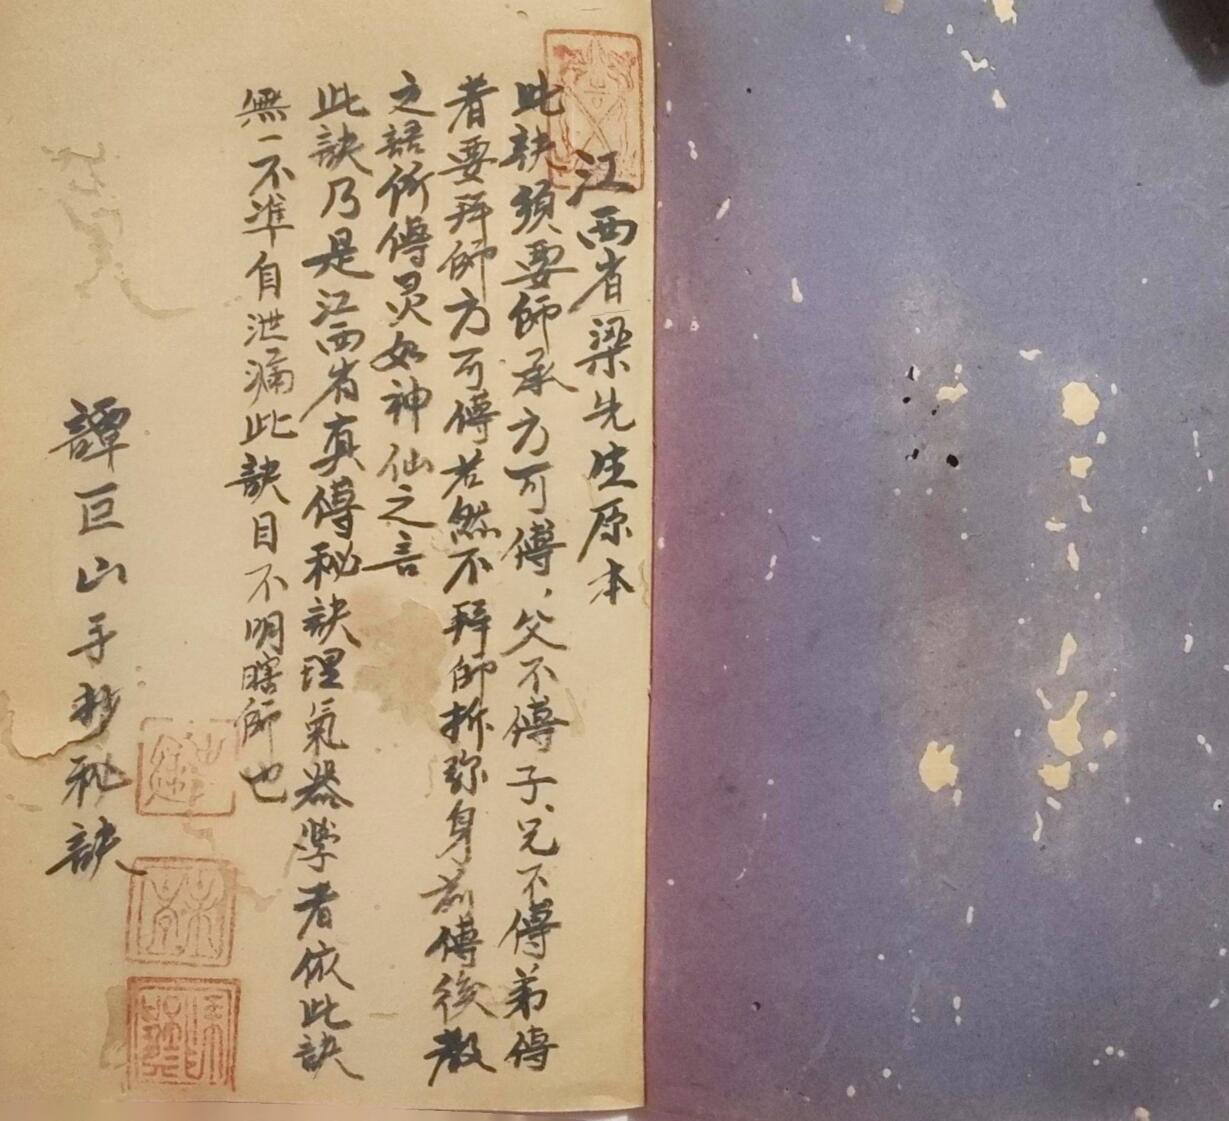 江西省梁先生原本
此訣須要師承方可傳，父不傳子、兄不傳弟傳
者要拜師方可傳若然不拜師拆孫身前傳後教
之語所傳灵如神仙之言
此訣乃是江西省真傳秘訣理氣器学者依此訣
無一不準自泄漏此訣目不明瞎師也
譚巨山手抄秘訣